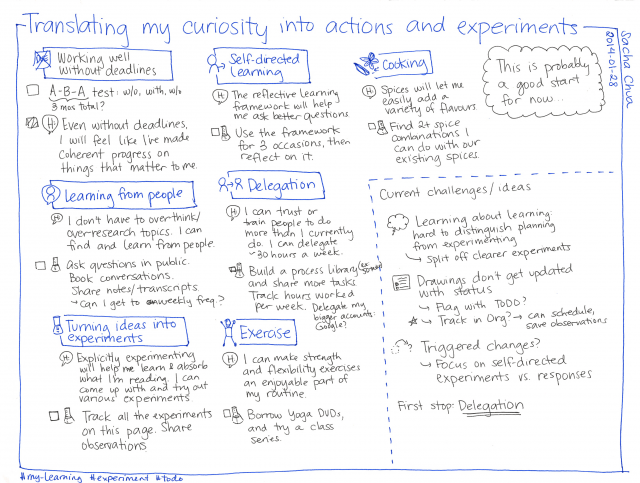 Translating my curiosity into actions and experiments
Sacha Chua
2014-01-28
Working well
without deadlines
A-B-A test: w/o, with, w/o
3 mos total?
H
Even without deadlines,
I will feel like I've made
coherent progress on
things that matter to me.
Self-directed
Learning
H
The reflective learning
framework will help
me ask better questions
Use the framework
for 3 occasions, then
reflect on it.
Cooking
H
Spices will let me
easily add a
variety of flavours.
Find 2+ spice
combinations I
can do with our
existing spices.
This is probably
a good start
for now...
Learning from people
H
I don't have to overthink/
over-research topics. I can
find and learn from people.
Ask questions in public.
Book conversations.
Share notes/transcripts.
Can I get to weekly freq.?
Delegation
H
I can trust or
train people to do
more than I currently
do. I can delegate
~30 hours a week.
Build a process library
and share more tasks
Track hours worked
per week. Delegate my
bigger accounts:
Google?
Turning ideas into
experiments
H
Explicitly experimenting
will help me learn & absorb
what I'm reading. I can
come up with and try out
various experiments.
Track all the experiments
on this page. Share
observations
Exercise
H
I can make strength
and flexibility exercises
an enjoyable part of
my routine.
Borrow Yoga DVDs,
and try a class
series.
Current challenges/ideas
Learning about learning:
hard to distinguish planning
from experimenting
split off clearer experiments
Drawings don't get updated
with status
Flag with TODO?
Track in Org? → can schedule,
save observations
Triggered changes?
Focus on self-directed
experiments vs. responses
First stop: Delegation
#my-learning #experiment #todo